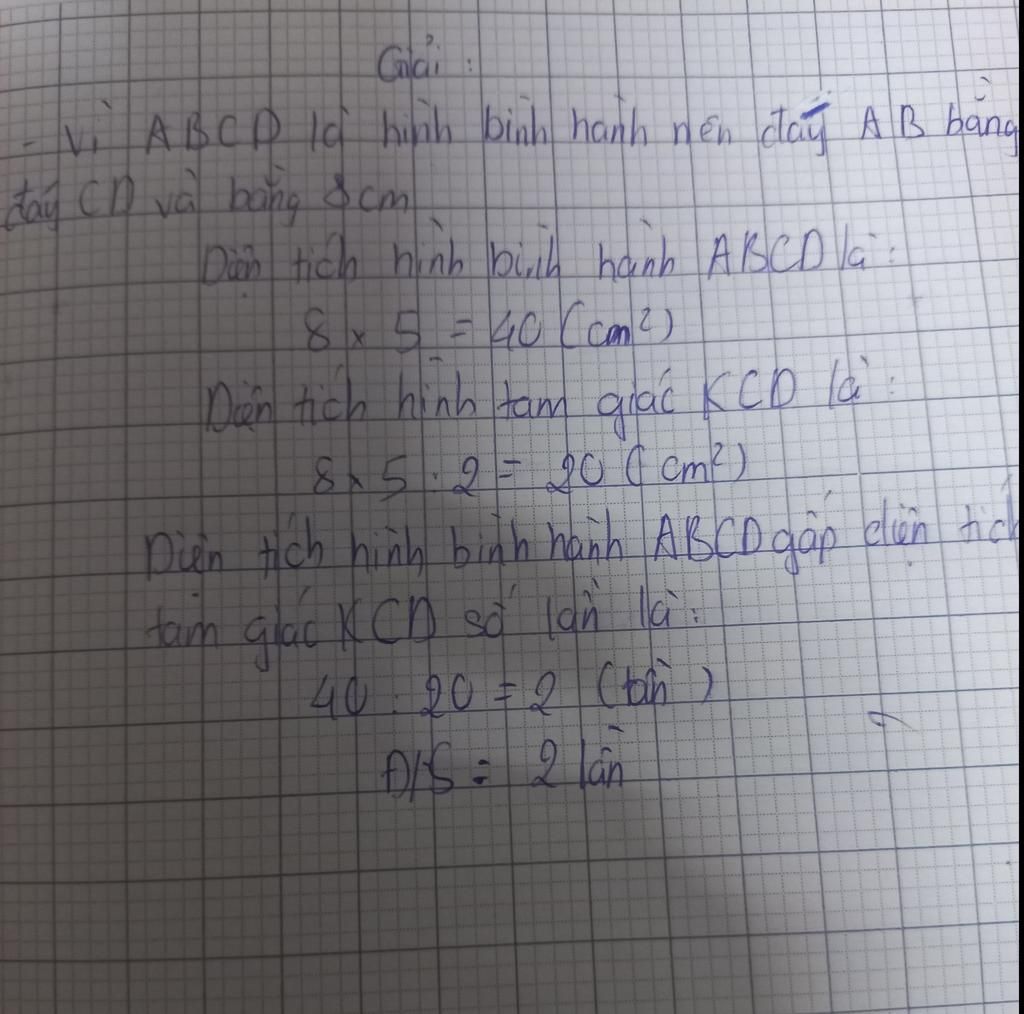 Giải:
- Vì ABCD là hình bình hành nên đáy AB bằng
đáy CD và bằng 8cm
Diện tích hình bình hành ABCD là:
8 x 5 = 40 (cm²)
Diện tích hình tam giác KCD là:
8 x 5 : 2 = 20 (cm²)
Diện tích hình bình hành ABCD gấp diện tích
tam giác KCD số lần là:
40 : 20 = 2 (lần)
Đ/S: 2 lần